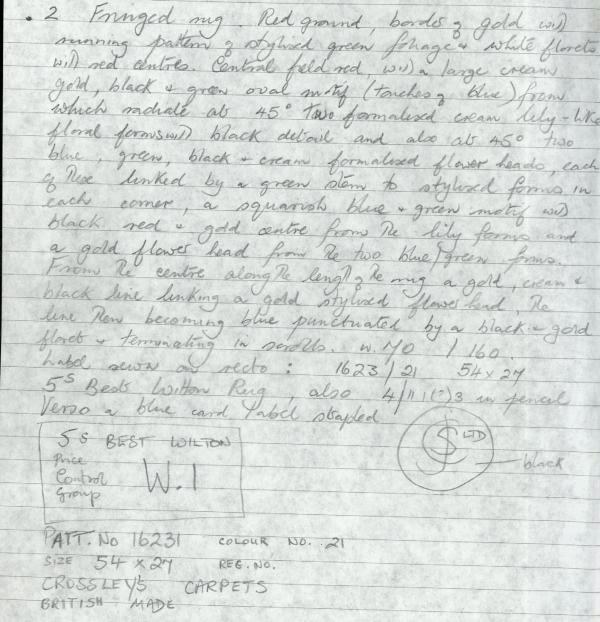 . 2 Fringed rug. Red ground, border of gold with
running pattern of stylised green foliage & white florets
with red centres. Central field red, with a large cream
gold, black & green oval motif (touches of blue) from
which radiate at 45° two formalised cream lily-like
floral forms with black detail and also at 45° two
blue, green, black & cream formalised flower heads, each
of these linked by a green stem to stylised forms in
each corner, a squarish blue & green motif with
black red & gold centre from the lily forms and
a gold flower head from the two blue/green forms.
From the centre along the length of the rug a gold, cream &
black line linking a gold stylised flower head, the
line then becoming blue punctuated by a black & gold
floret & terminating in scrolls. w. 70 l 160
Label sewn on recto: 1623/21 54 x 27
5S Best Wilton Rug, also in pencil
Verso a blue card label stapled
5S BEST WILTON
Price
Control
Group
W.1
CS LTD
black
PATT. No 16231 COLOUR NO. 21
SIZE 54 x 27 REG. NO.
CROSSLEYS CARPETS
BRITISH MADE